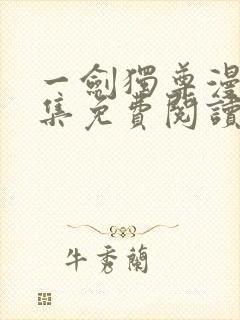 一劍獨尊漫
集免費閱讀
牛秀蘭